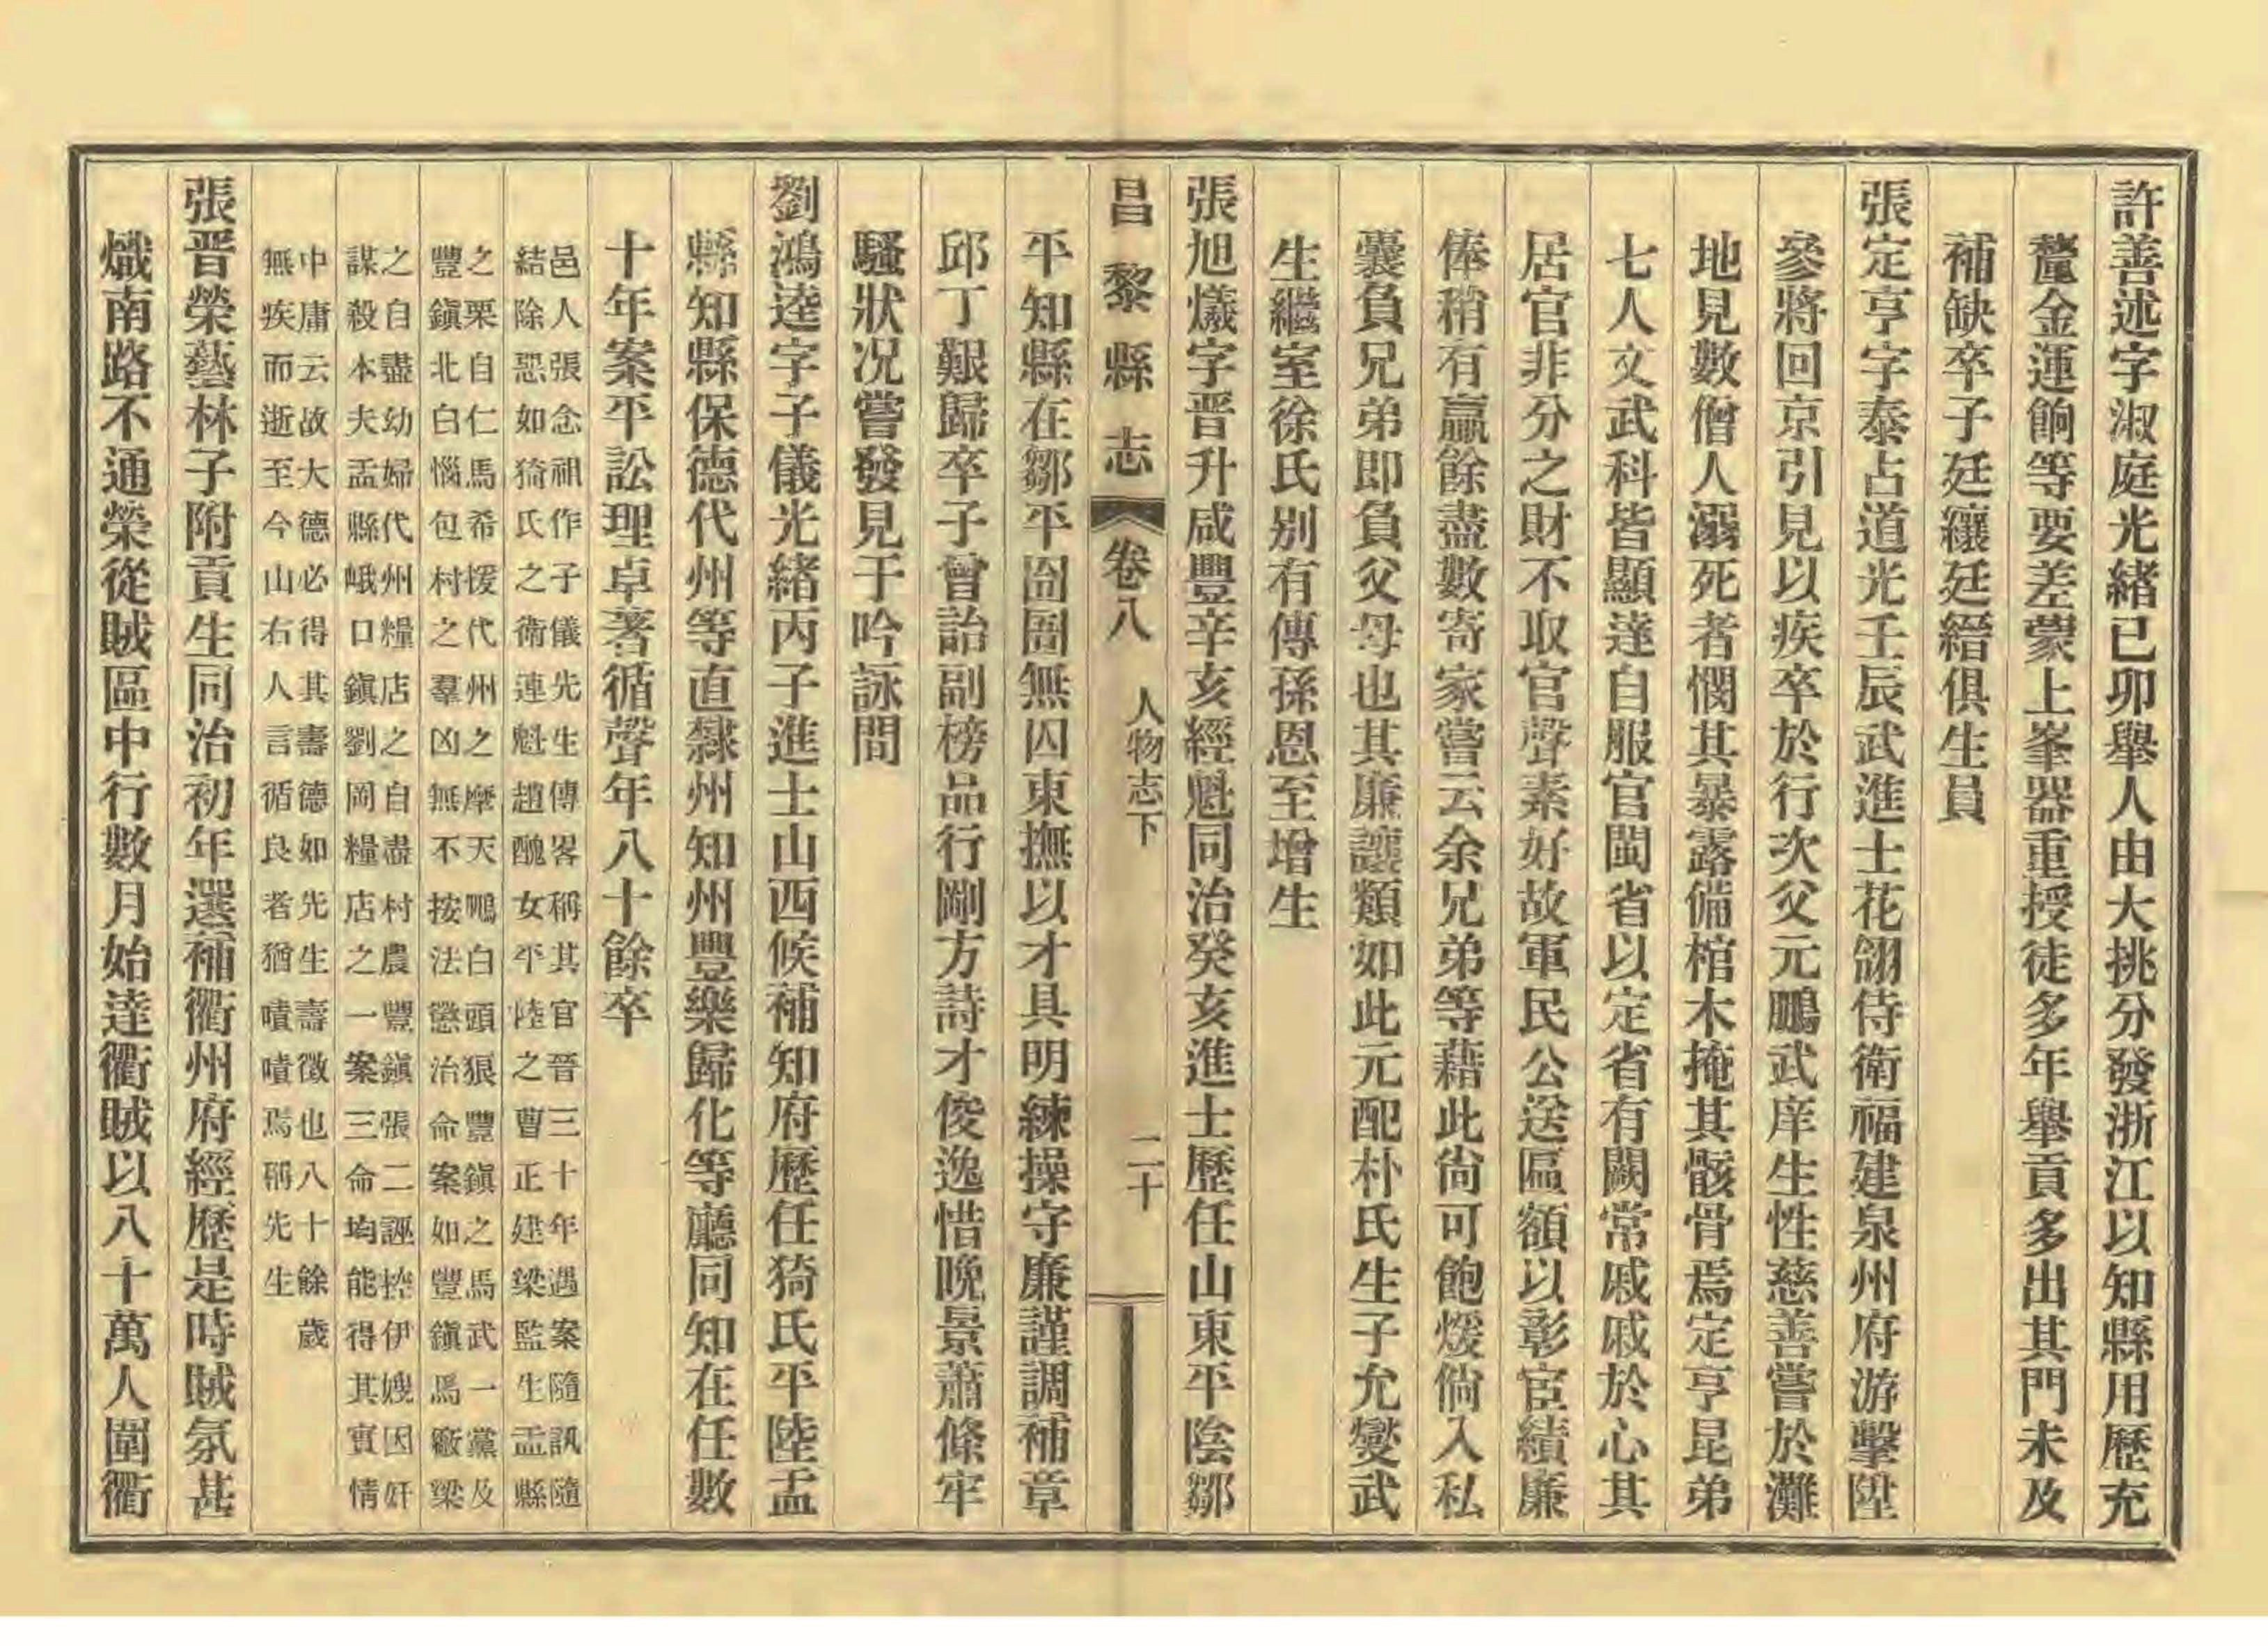 許善述字淑庭光緒已卯舉人由大挑分發浙江以知縣用歷充
釐金運餉等要差蒙上峯器重授徒多年舉貢多出其門未及
補缺卒子廷纕廷縉俱生員
張定亨字泰占道光壬辰武進士花翎侍衛福建泉州府游擊陞
參將回京引見以疾卒於行次父元鵬武庠生性慈善嘗於灘
地見數僧人溺死者憫其暴露備棺木掩其骸骨焉定亨昆弟
七人文武科皆顯達自服官閩省以定省有闕常戚戚於心其
居官非分之財不取官聲素好故軍民公送區額以彰宦績廉
俸稍有贏餘盡數寄家嘗云余兄弟等藉此尙可飽煖倘入私
囊負兄弟即負父母也其廉讓類如此元配朴氏生子允燮武
生繼室徐氏別有傳孫恩至增生
張旭爔字晋升咸豐辛亥經魁同治癸亥進士歷任山東平陰鄒
昌黎縣志 卷八 人物志下 二十
平知縣在鄒平囹圄無囚東撫以才具明練操守廉謹調補章
邱丁艱歸卒子曾詒副榜品行剛方詩才俊逸惜晚景蕭條牢
騷狀况嘗發見于吟詠間
劉鴻逵字子儀光緒丙子進士山西候補知府歷任猗氏平陸盂
縣知縣保德代州等直隸州知州豐樂歸化等廳同知在任數
十年案平訟理卓著循聲年八十餘卒
邑人張念祖作子儀先生傳畧稱其官晉三十年遇案隨訊隨
結除惡如猗氏之衛連魁趙醜女平陸之曹正建梁監生盂縣
之栗自仁馬希援代州之摩天鴫白頭狼豐鎭之馬武一黨及
豐鎭北白惱包村之羣凶無不按法懲治命案如豐鎭馬廠梁
之自盡幼婦代州糧店之自盡村農豐鎭張二誣控伊嫂因奸
謀殺本夫盂縣峨口鎭劉岡糧店之一案三命均能得其實情
中庸云故大德必得其壽德如先生壽徵也八十餘歲
無疾而逝至今山右人言循良者猶嘖嘖焉稱先生
張晋榮藝林子附貢生同治初年選補衢州府經歷是時賊氛甚
熾南路不通榮從賊區中行數月始達衢賊以八十萬人圍衢